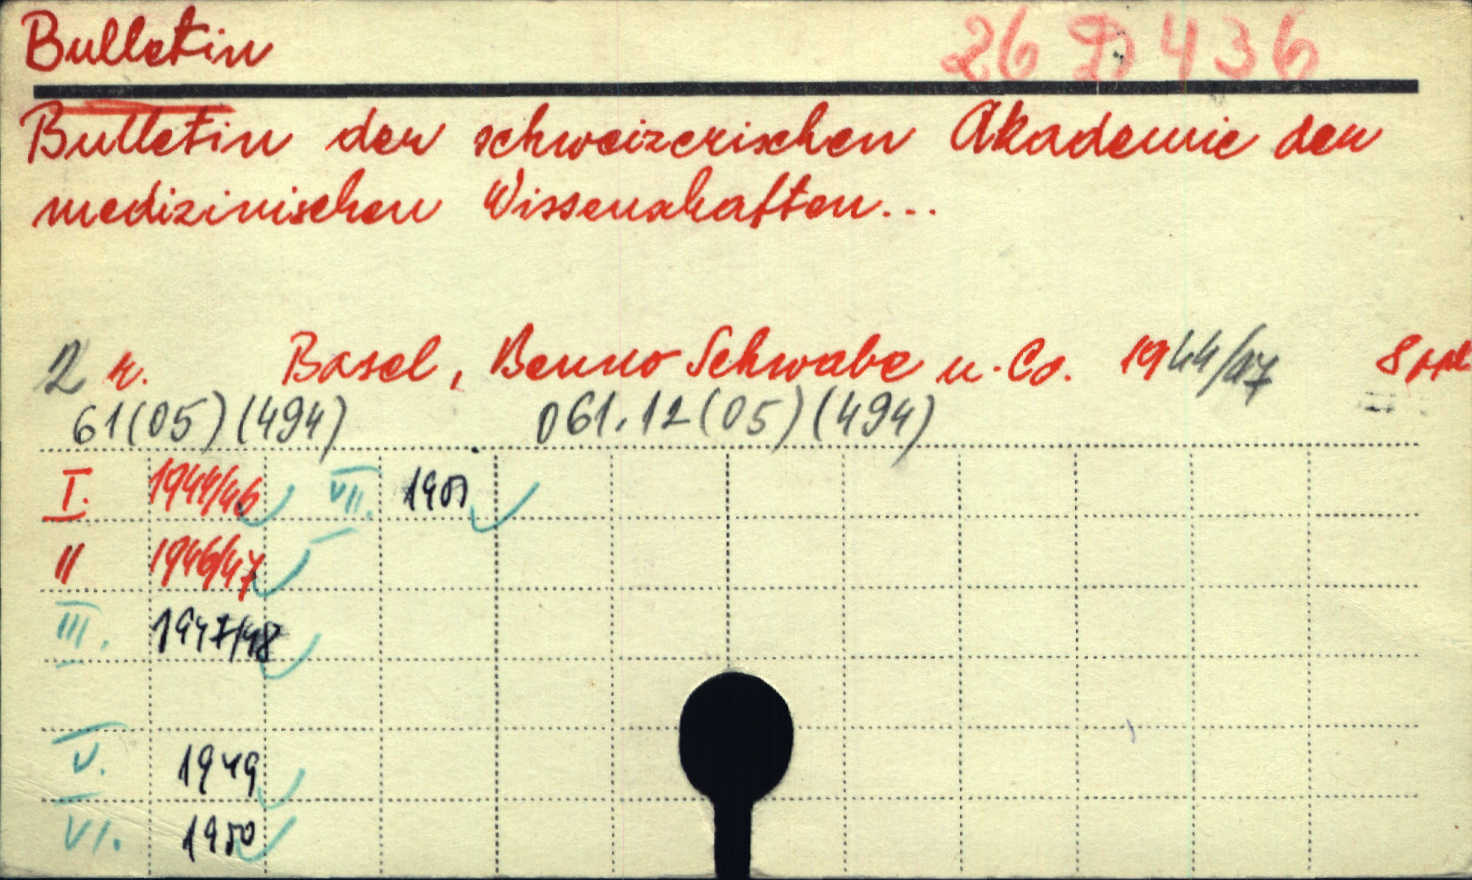 Bulletin 26 D 436
Bulletin der schweizerischen Akademie der
medizinischen Wissenschaften...
2 r. Basel, Benno Schwabe u. Co. 1944/47 8
61(05)(494) 061.12(05)(494)
I. 1944/46 VII. 1951
II 1946/47
III. 1947/48
V. 1949
VI. 1950